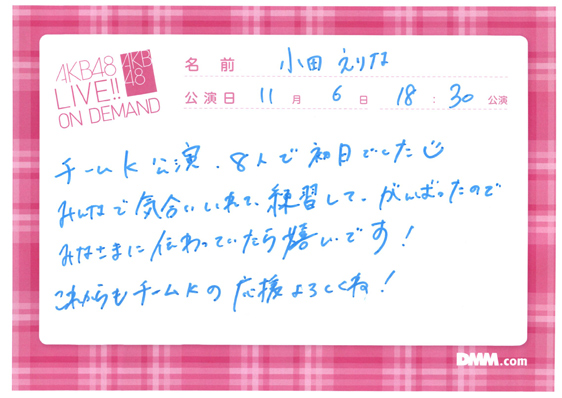 AKB48
LIVE!!
ON DEMAND
AKB
48
名前 小田えりな
公演日 11月 6日 18:30 公演
チームK 公演、8人で初日でした
みんなで気合いいれて、練習して、がんばったので
みなさまに伝わっていたら嬉しいです!
これからもチームKの応援よろしくね!
DMM.com